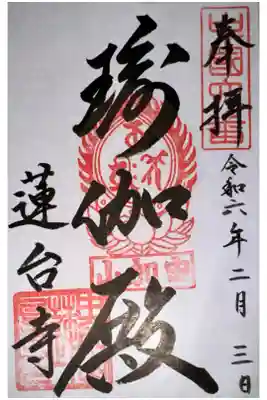 奉拝
令和六年二月三日
瑜伽殿
蓮台寺